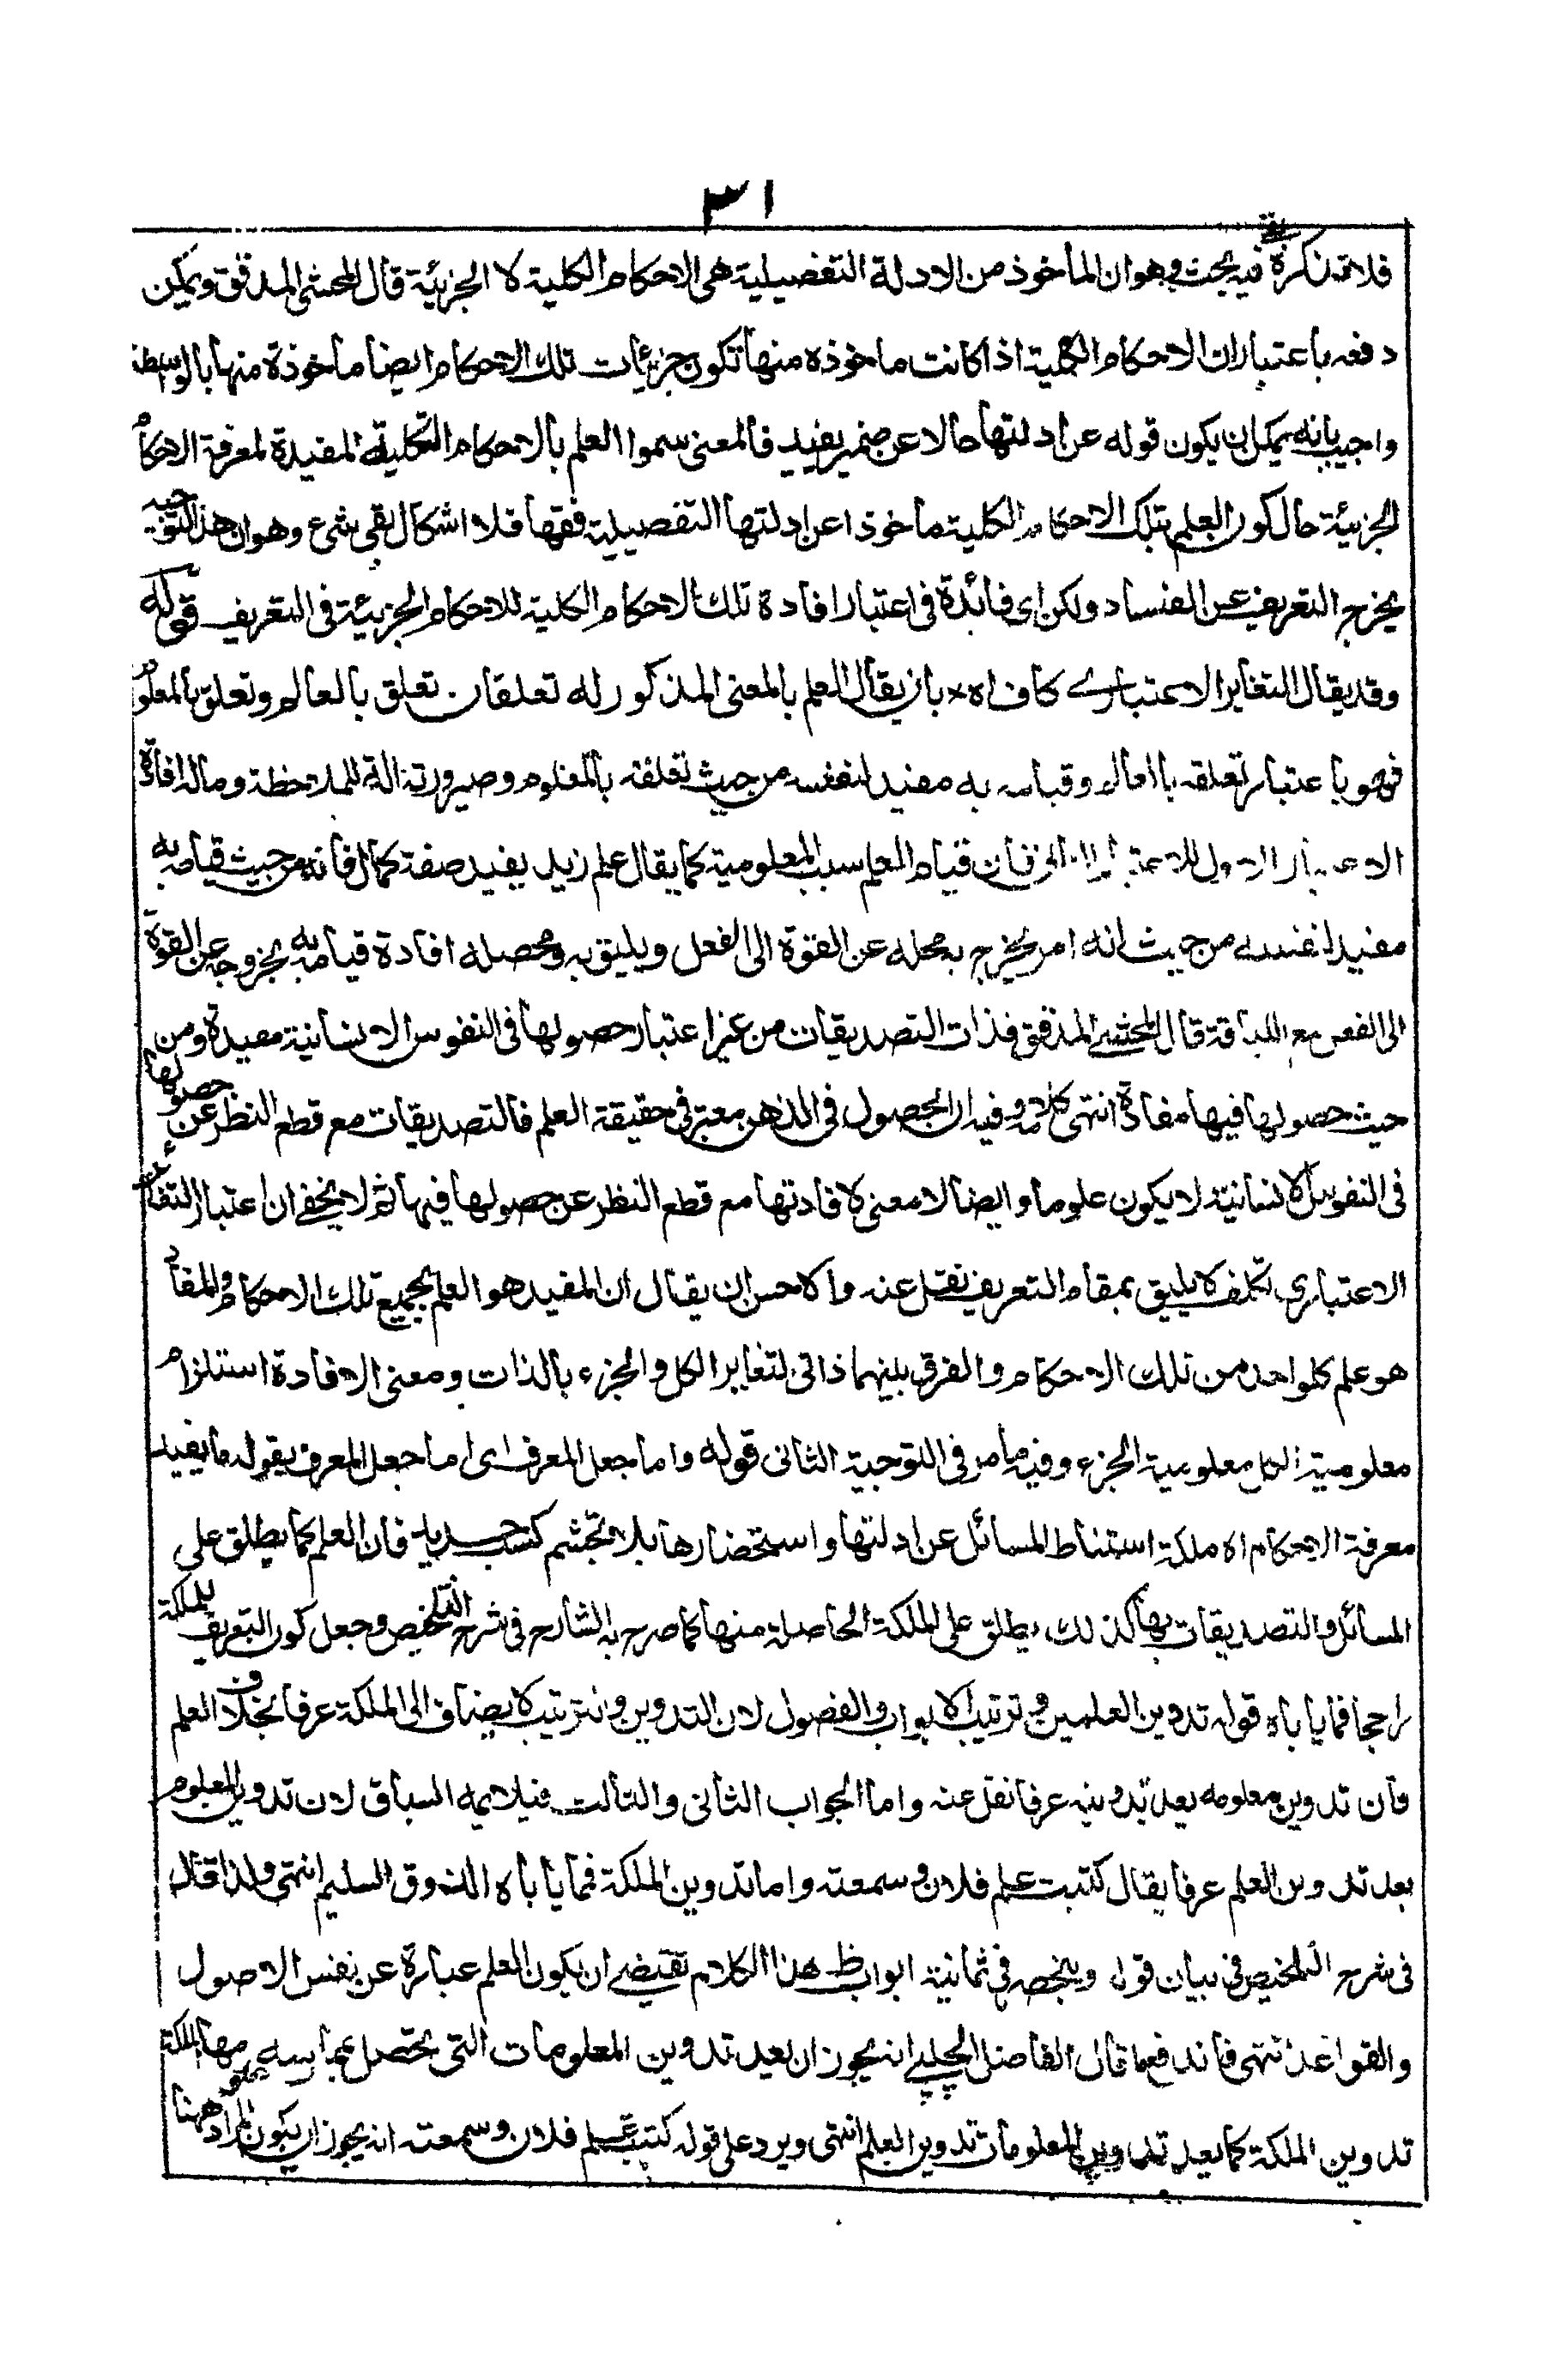 ٣١
فلا تذكره بقى فيه بحث وهو ان المأخوذ من الادلة التفصيلية هى الاحكام الكلية لا الجزئية قال المحشى المدقق ويمكن
دفعه باعتبار ان الاحكام الكلية اذا كانت ماخوذه منها تكون جزئيات تلك الاحكام ايضا ماخوذة منها بالواسطة
واجيب بانه يمكن ان يكون قوله عن ادلتها حالا عن ضمير يفيد فالمعنى سموا العلم بالاحكام الكلية المفيدة لمعرفة الاحكام
الجزئية حال كون العلم بتلك الاحكام الكلية ماخوذا عن ادلتها التفصيلية فقها فلا اشكال بقى شئ وهو ان هذا التوجيه
يخرج التعريف عن الفساد ولكن اى فائدة فى اعتبار افادة تلك الاحكام الكلية للاحكام الجزئية فى التعريف قوله
وقد يقال التغاير الاعتبارے كاف اه بان يقال العلم بالمعنى المذكور له تعلقان تعلق بالعالم وتعلق بالمعلوم
فهو باعتبار تعلقه بالعالم وقيامه به مفيد لنفسه من حيث تعلقه بالمعلوم وصيرورته الة للملاحظة وماله افادة
الاعتبار الاول للاعتبار الاخر فان قيام العلم سبب المعلومية كما يقال علم زيد يفيد صفة كمال فانه من حيث قيامه به
مفيد لنفسه من حيث انه امر يخرج به محله عن القوة الى الفعل ويليق به ومحصله افادة قيامه به بخروجه عن القوة
الى الفعل مع اللياقة قال المحشى المدقق فذات التصديقات من غير اعتبار حصولها فى النفوس الانسانية مفيدة ومن
حيث حصولها فيها مفادة انتهى كلامه وفيه ان الحصول فى الذهن معتبر فى حقيقة العلم فالتصديقات مع قطع النظر عن حصولها
فى النفوس الانسانية لا يكون علوما وايضا لا معنى لافادتها مع قطع النظر عن حصولها فيها ثم لا يخفے ان اعتبار التغاير
الاعتبارى تكلف لا يليق بمقام التعريف نقل عنه والاحسن ان يقال ان المفيد هو العلم بجميع تلك الاحكام والمفاد
هو علم كلواحد من تلك الاحكام والفرق بينهما ذاتى لتغاير الكل والجزء بالذات ومعنى الافادة استلزام
معلومية الكل معلومية الجزء وفيه ما مر فى التوجيه الثانى قوله واما جعل المعرف اى اما جعل المعرف بقوله ما يفيد
معرفة الاحكام اه ملكة استنباط المسائل عن ادلتها واستحضارها بلا تجشم كسب جديد فان العلم كما يطلق على
المسائل والتصديقات بها كذلك يطلق على الملكة الحاصلة منها كما صرح به الشارح فى شرح التلخيص وجعل كون التعريف للملكة
راجحا فما يأباه قوله تدوين العلمين وترتيب الابواب والفصول لان التدوين والترتيب لا يضاف الى الملكة عرفا بخلاف العلم
فان تدوين معلومه يعد تدوينه عرفا نقل عنه واما الجواب الثانى والثالث فيلايمه السباق لان تدوين المعلوم
يعد تدوين العلم عرفا يقال كتبت علم فلان وسمعته واما تدوين الملكة فمما يأباه الذوق السليم انتهى ولذا قال
فى شرح التلخيص فى بيان قوله وينحصر فى ثمانية ابواب ظ هذا الكلام تقتضے ان يكون العلم عبارة عن نفس الاصول
والقواعد انتهى فاندفع ما قال الفاضل الچلپے انه يجوز ان يعد تدوين المعلومات التى يحصل بممارسة علومها الملكة
تدوين الملكة كما يعد تدوين المعلومات تدوين العلم انتهى ويرد على قوله كتبت علم فلان وسمعته انه يجوز ان يكون المراد ههنا